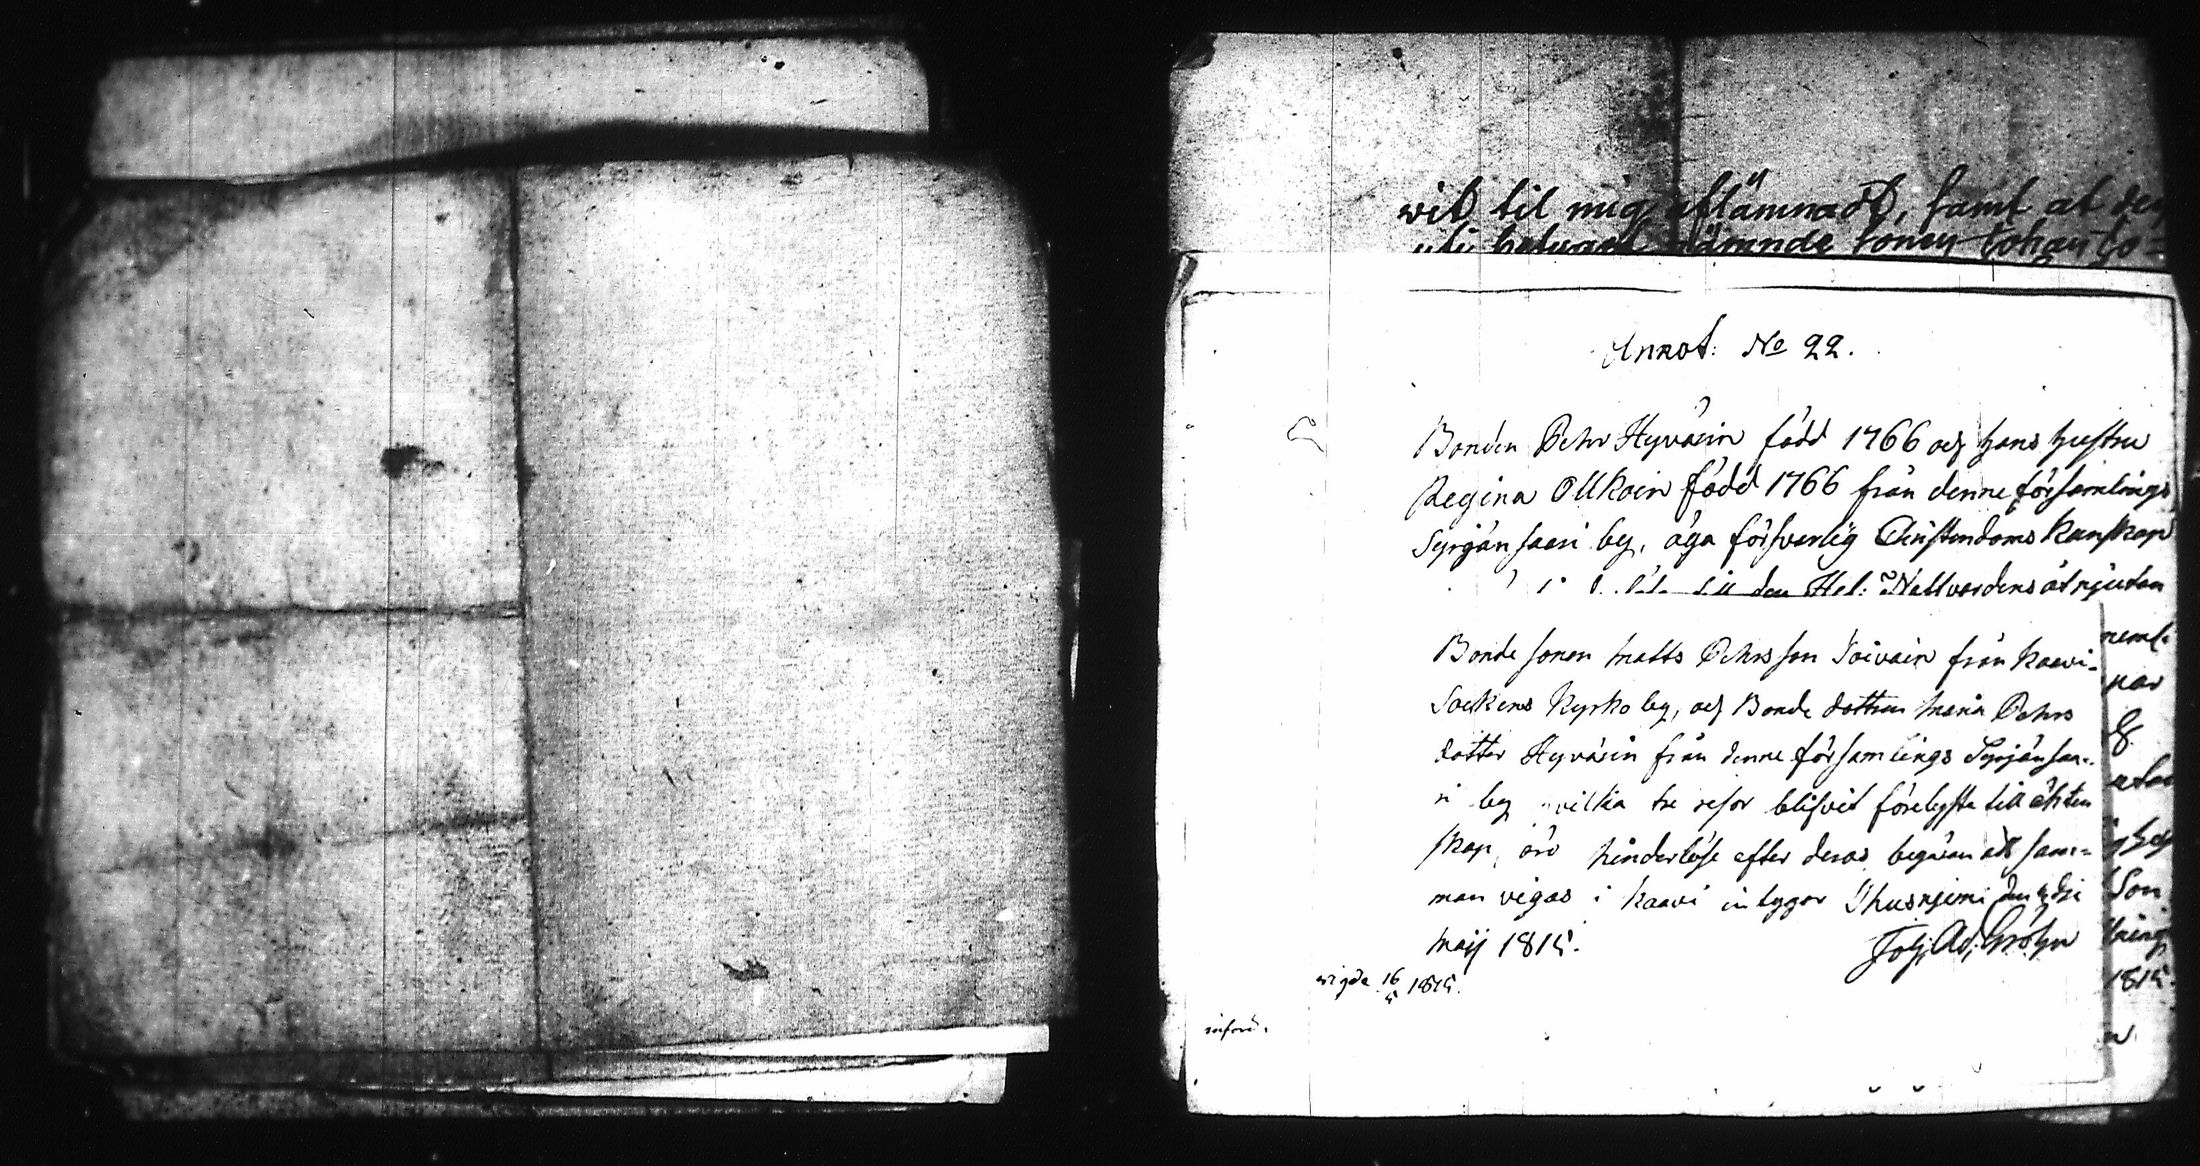 wit til mig aflämnadt, samt at den
uti betyget nämnde Sonen Johan
Annot: No 22.
Bonden Pehr Hyvärin född 1766 och hans hustru
Regina Ollkoin född 1766 från denne församlings
Syrjänsaari by, äga försvarlig Christendoms kunskap
den Hel: Nattvardens åtnjutan
Bonde sonen Matts Pehrsson Toivain från Kaavi-
Sockens Kyrko by, och Bonde dottren Maria Pehrs
dotter Hyvärin från denne församlings Syrjänsaa-
ri by hvilka tre resor blifvit förelyste till ächten
skap, äro hinderlöse efter deras begäran att sam=
man vigas i Kaavi intygar Thusnjemi den
Maij 1815. Joh: Ad: Gröhn
wigde 16/5 1815.
införd.
1815.